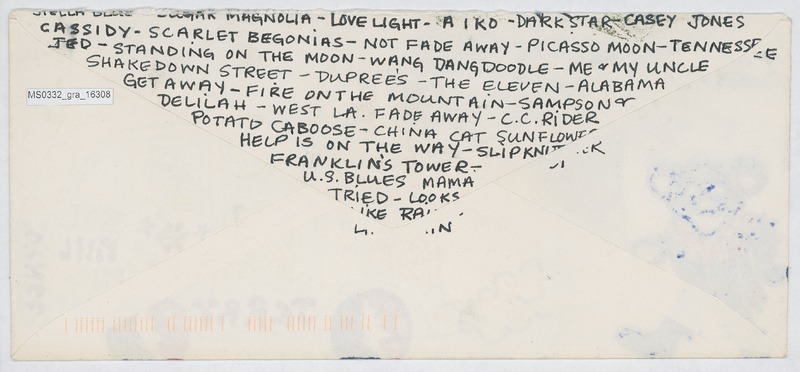 STELLA BLUE - SUGAR MAGNOLIA - LOVELIGHT - AIKO - DARK STAR - CASEY JONES
CASSIDY - SCARLET BEGONIAS - NOT FADE AWAY - PICASSO MOON - TENNESSEE
JED - STANDING ON THE MOON - WANG DANG DOODLE - ME & MY UNCLE
SHAKEDOWN STREET - DUPREE'S - THE ELEVEN - ALABAMA
MS0332_gra_16308
GETAWAY - FIRE ON THE MOUNTAIN - SAMPSON &
DELILAH - WEST L.A. FADE AWAY - C.C. RIDER
POTATO CABOOSE - CHINA CAT SUNFLOWER
HELP IS ON THE WAY - SLIPKNI
FRANKLIN'S TOWER -
U.S. BLUES MAMA
TRIED - LOOKS
IKE RAI